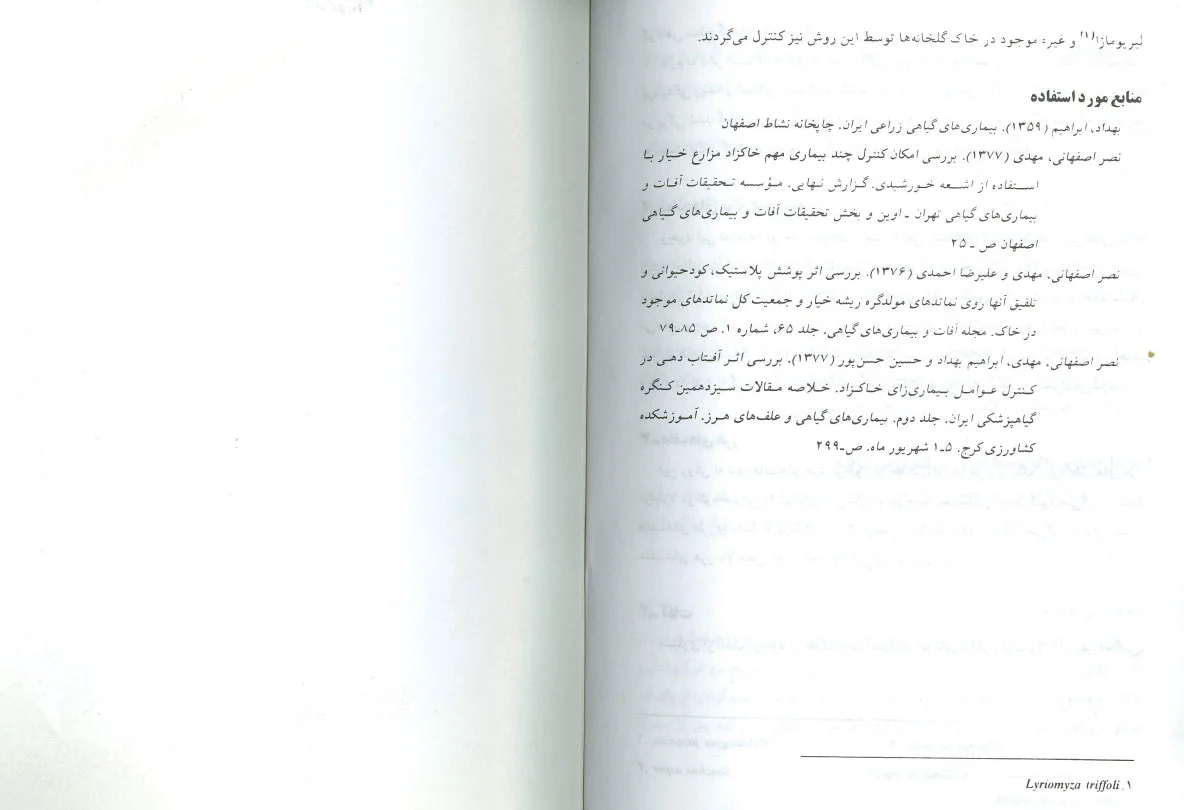 لیریومازا(۱) و غیره موجود در خاک گلخانه‌ها توسط این روش نیز کنترل می‌گردند.
منابع مورد استفاده
بهداد، ابراهیم (۱۳۵۹). بیماری‌های گیاهی زراعی ایران. چاپخانه نشاط اصفهان
نصر اصفهانی، مهدی (۱۳۷۷). بررسی امکان کنترل چند بیماری مهم خاکزاد مزارع خیار با
استفاده از اشعه خورشیدی. گزارش نهایی. مؤسسه تحقیقات آفات و
بیماری‌های گیاهی تهران ـ اوین و بخش تحقیقات آفات و بیماری‌های گیاهی
اصفهان ص ـ ۲۵
نصر اصفهانی، مهدی و علیرضا احمدی (۱۳۷۶). بررسی اثر پوشش پلاستیک، کود حیوانی و
تلفیق آنها روی نماتدهای مولدگره ریشه خیار و جمعیت کل نماتدهای موجود
در خاک. مجله آفات و بیماری‌های گیاهی. جلد ۶۵، شماره ۱. ص ۸۵ـ۷۹
نصر اصفهانی، مهدی، ابراهیم بهداد و حسین حسن‌پور (۱۳۷۷). بررسی اثر آفتاب دهی در
کنترل عوامل بیماری‌زای خاکزاد. خلاصه مقالات سیزدهمین کنگره
گیاهپزشکی ایران. جلد دوم. بیماری‌های گیاهی و علف‌های هرز. آموزشکده
کشاورزی کرج. ۵ـ۱ شهریور ماه. ص‌ـ۲۹۹
۱. Lyriomyza triffoli